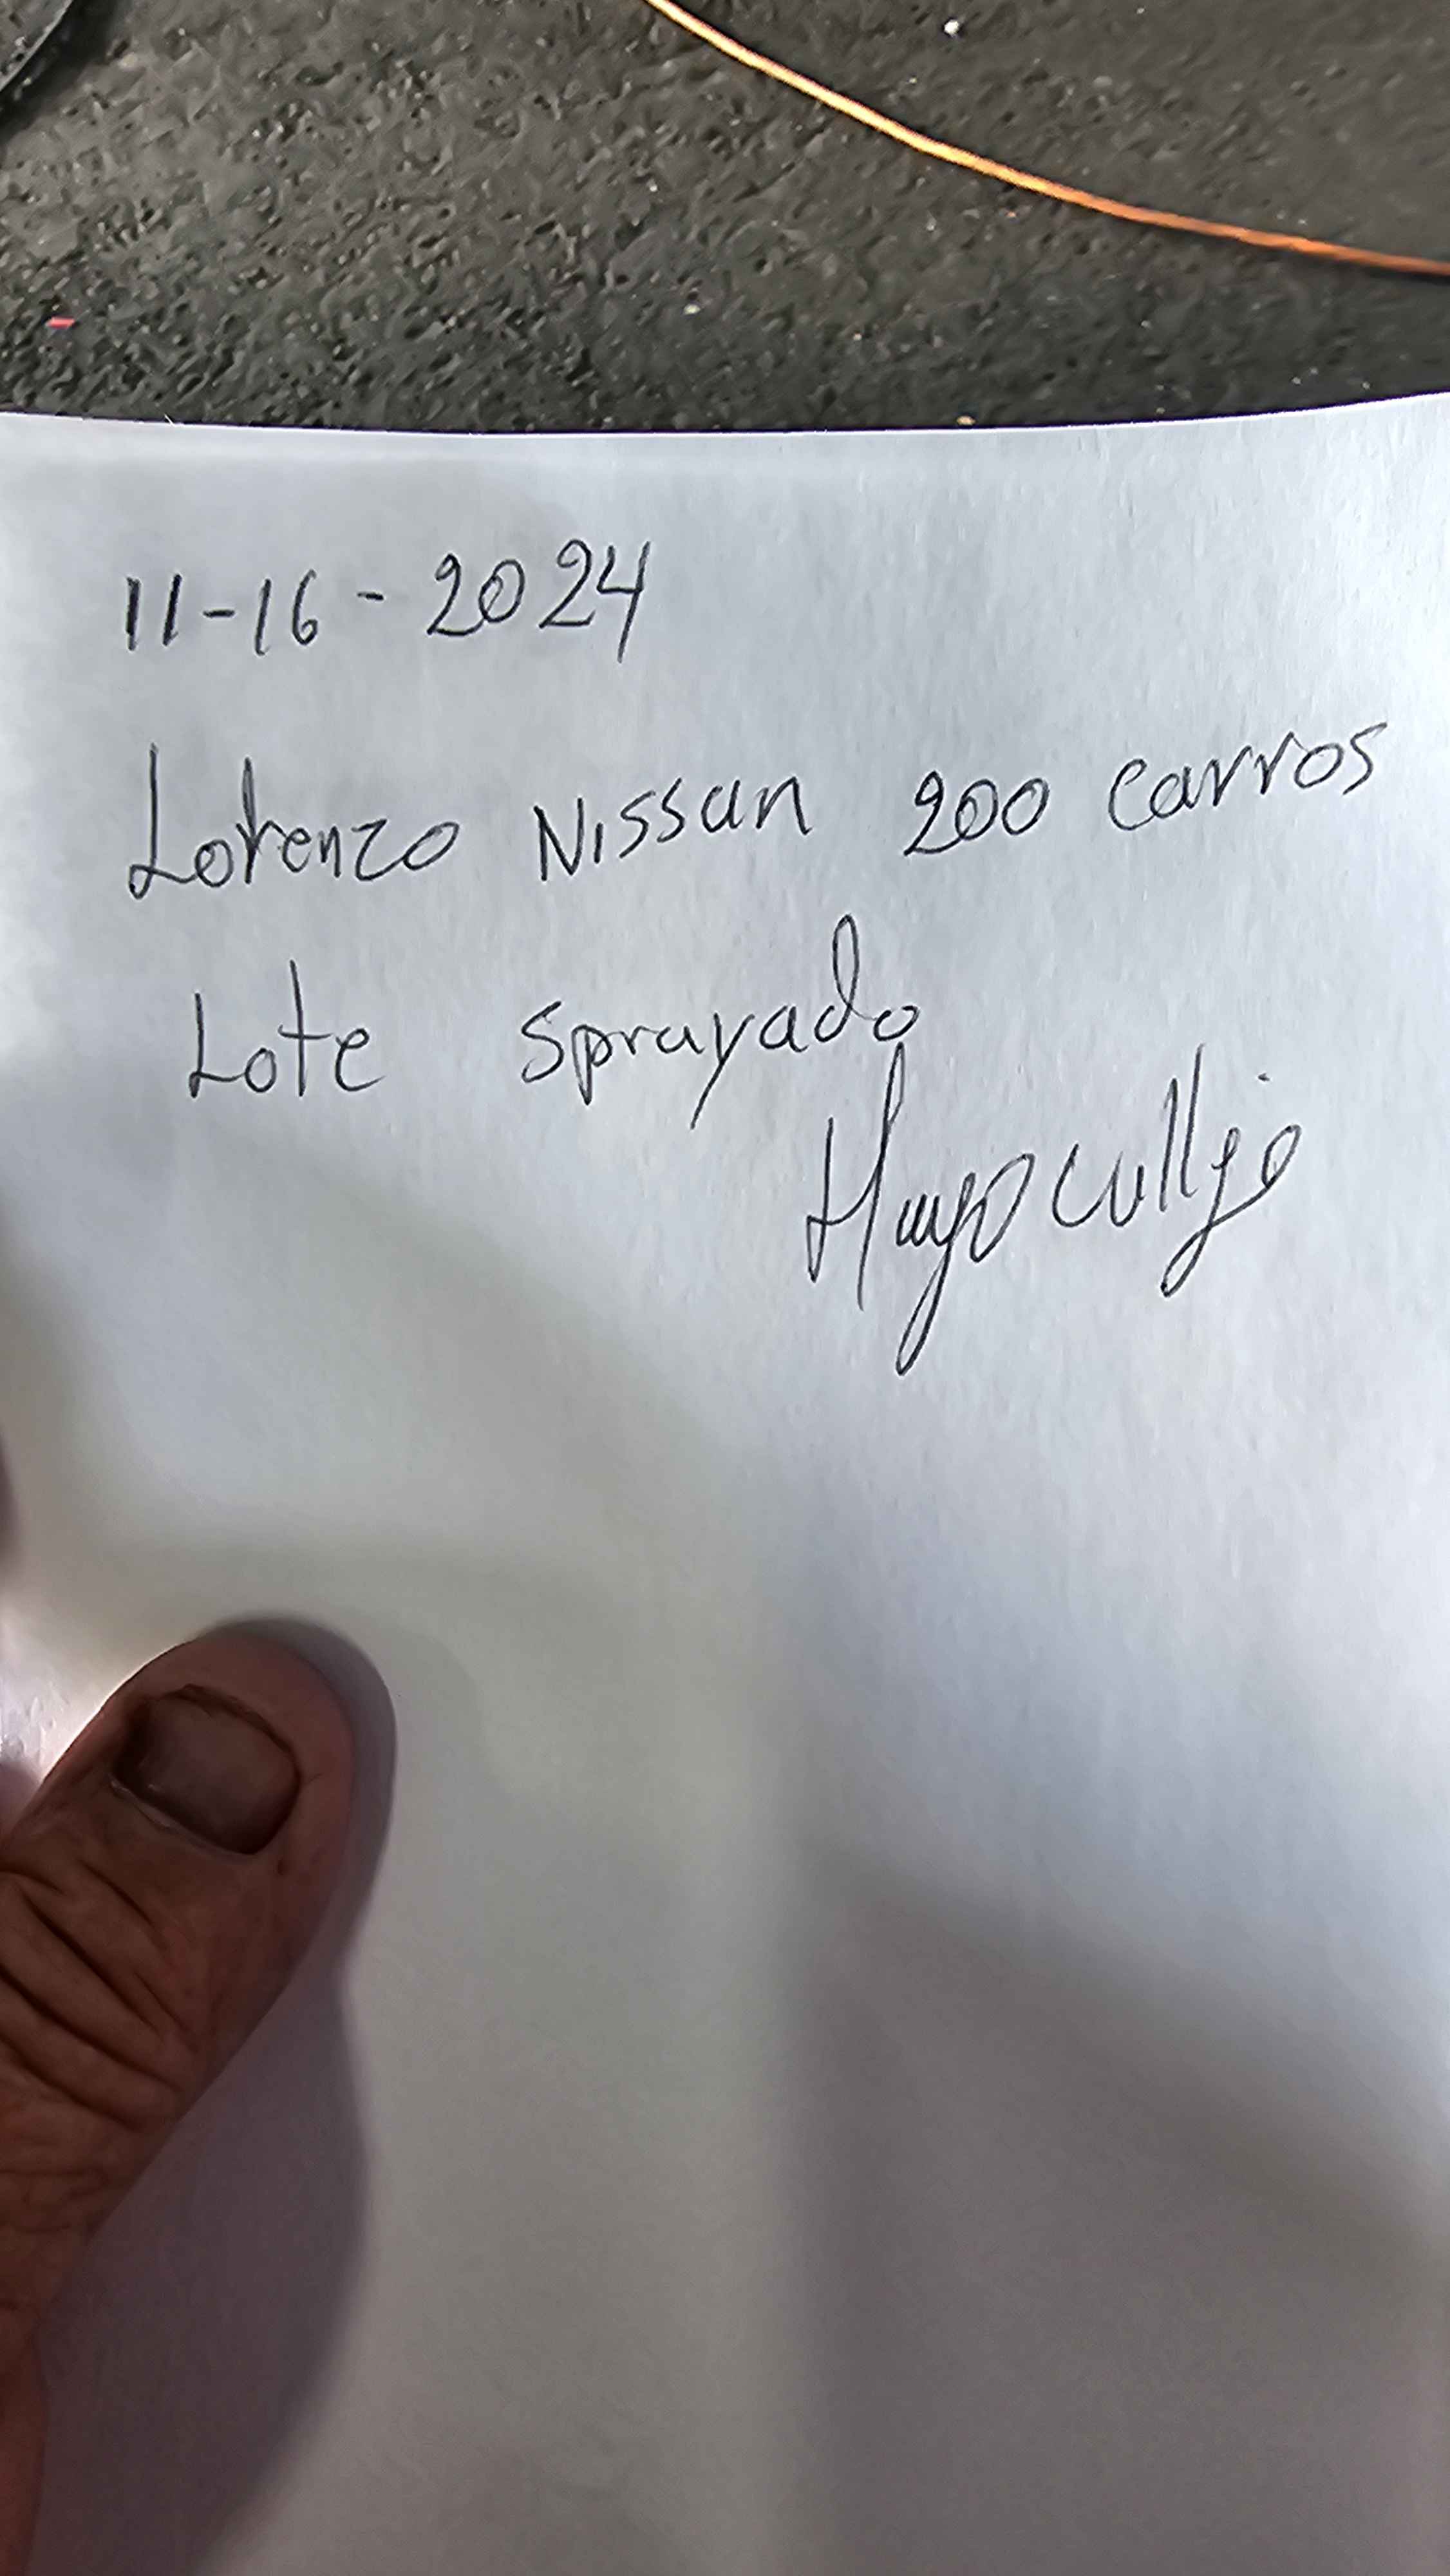 11-16-2024
Lorenzo Nissan 200 carros
Lote sprayado
Hugo